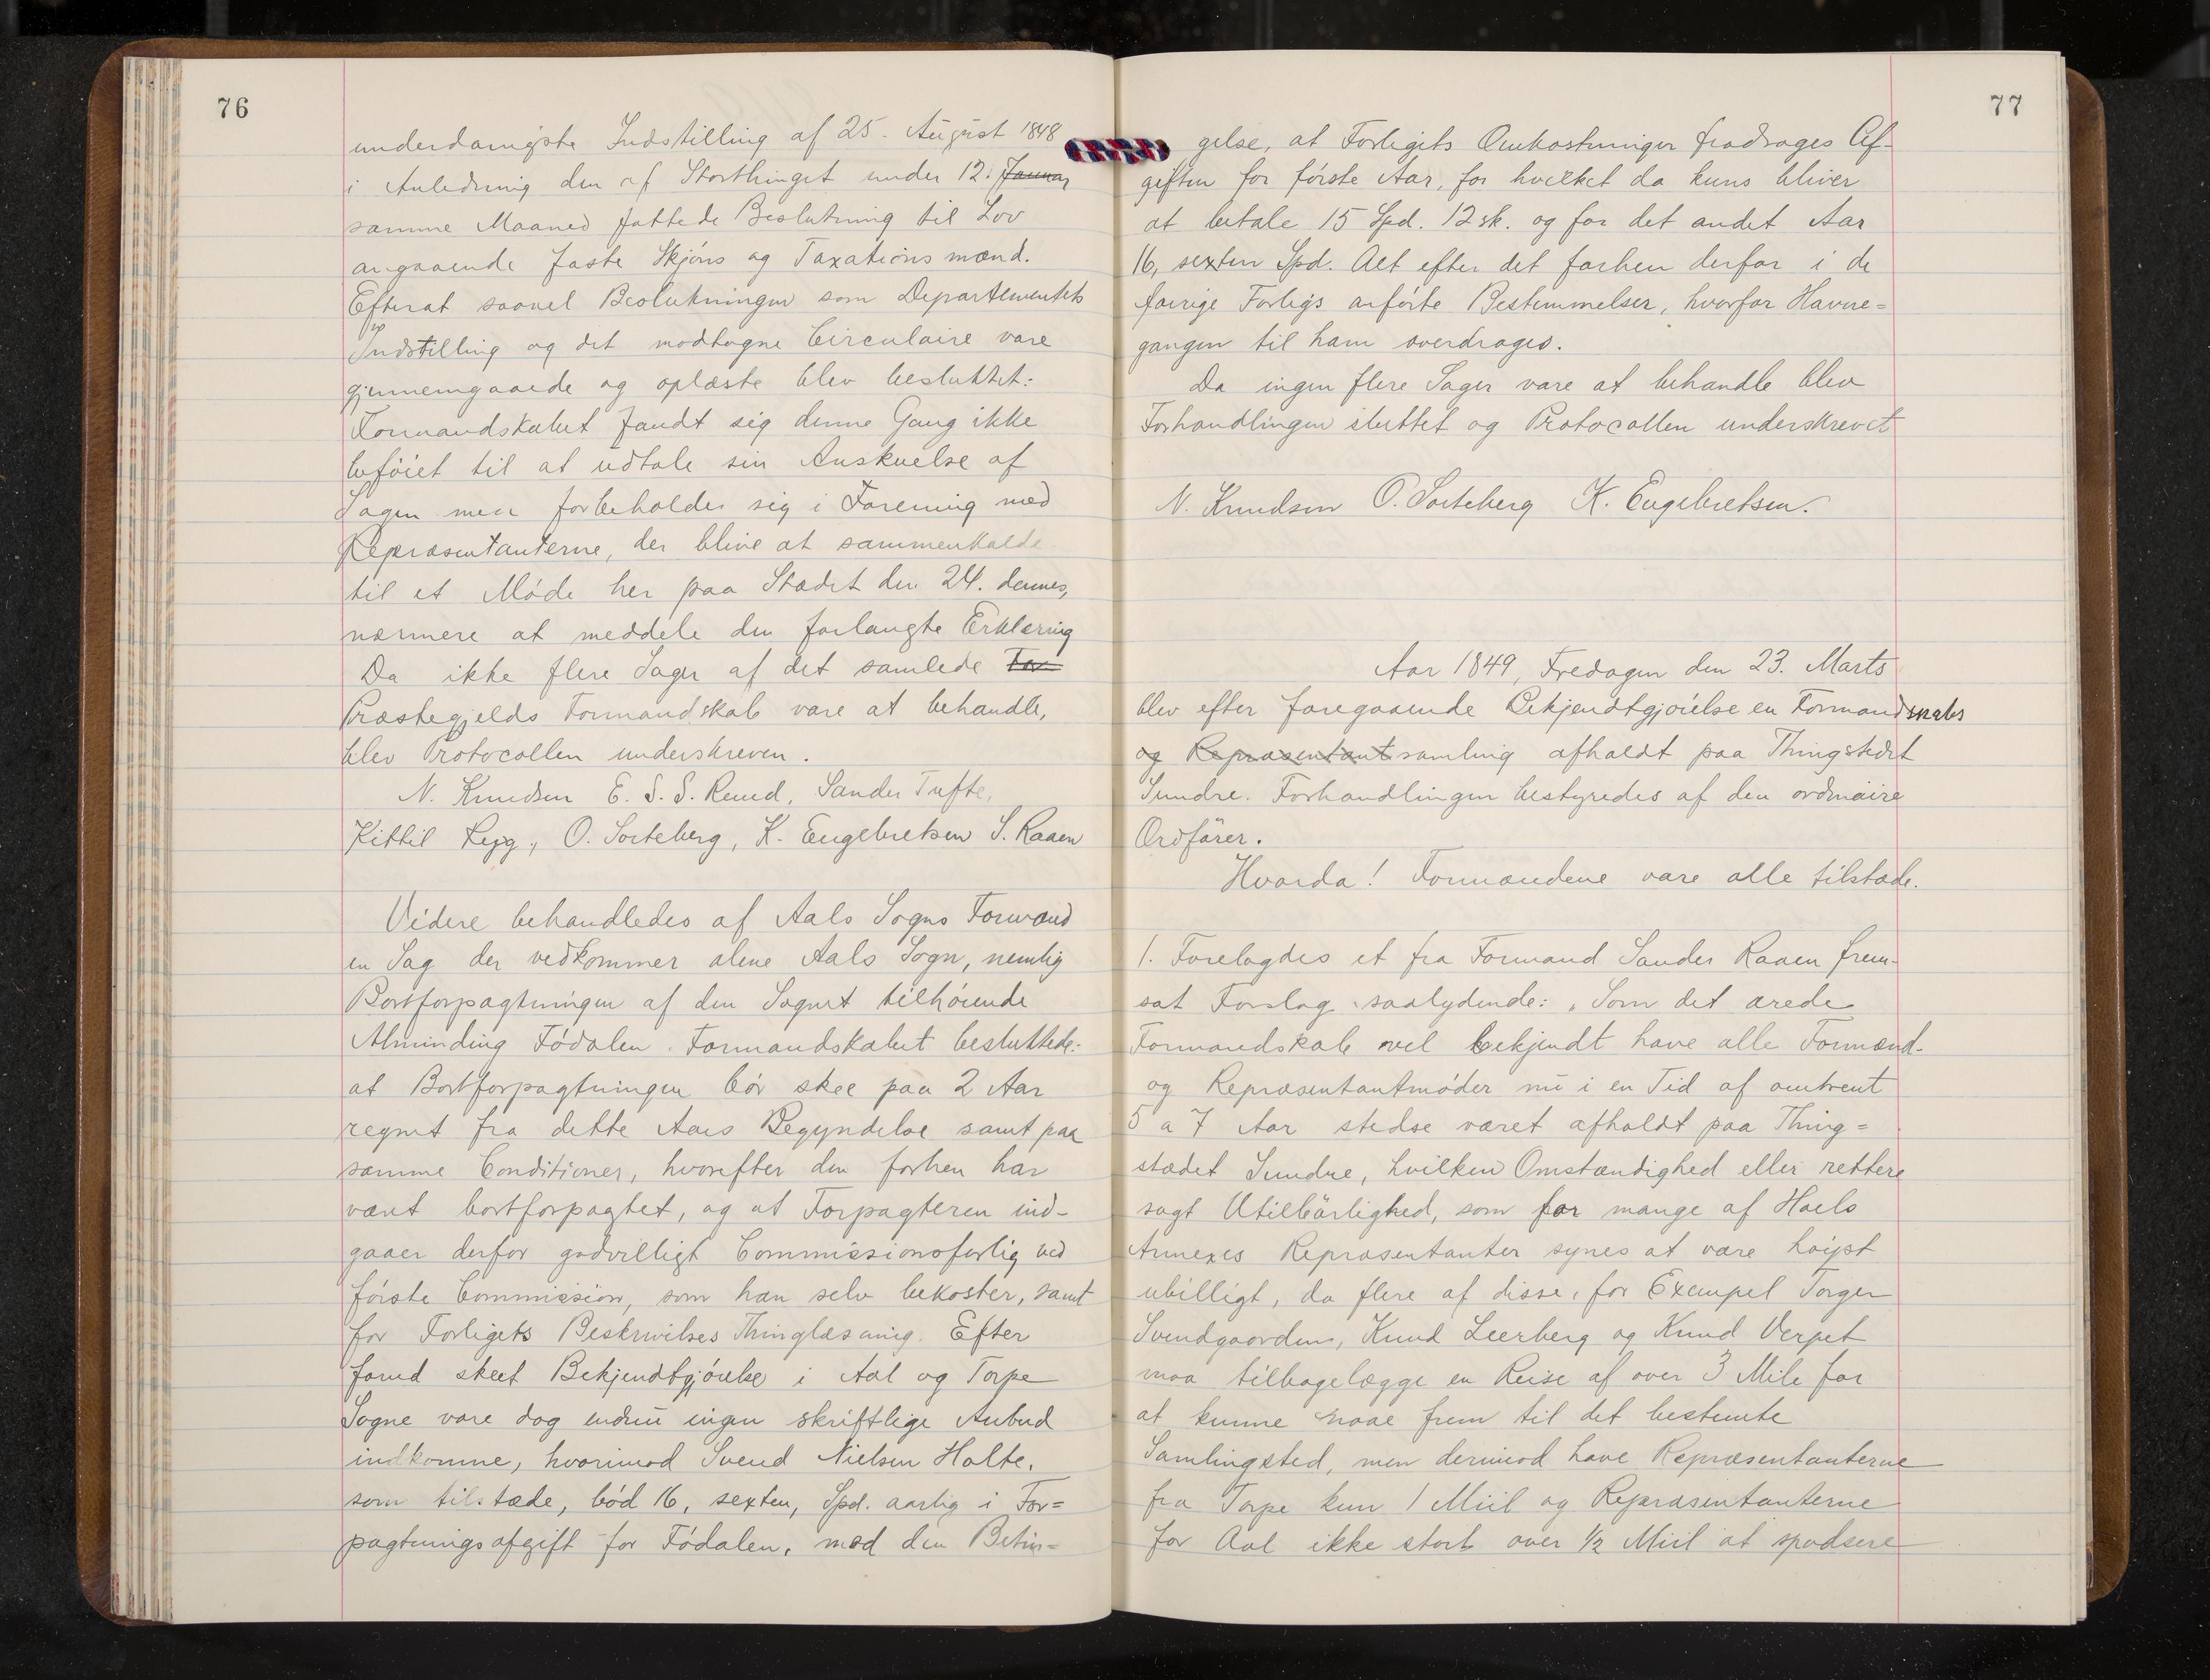 76
underdanigste Indstilling af 25. August 1848
i Anledning den af Storthinget under 12. Januar
samme Maaned fattede Beslutning til Lov
angaaende faste Skjöns og Taxations mænd.
Efterat saavel Beslutningen som Departementets
Indstilling og det modtagne Circulaire vare
gjennemgaaede og oplæste blev besluttet:
Formandskabet fandt sig denne Gang ikke
beföiet til at udtale sin Anskuelse af
Sagen men forbeholder sig i Forening med
Repræsentanterne, der blive at sammenkalde
til et Möde her paa Stædet den 24. dennes,
nærmere at meddele den forlangte Erklæring
Da ikke flere Sager af det samlede For
Præstegjelds Formandskab vare at behandle,
blev Protocollen underskreven.
N. Knudsen E. S. S. Reuud, Sander Tufte,
Kittil O. Sorteberg, K. Engebretsen S. Raaen
Videre behandledes af Aals Sogns Formænd
en Sag der vedkommer alene Aals Sogn, nemlig
Bortforpagtningen af den Sognet tilhörende
Alminding Födalen. Formandskabet besluttede:
at Bortforpagtningen bör skee paa 2 Aar
regnet fra dette Aars Begyndelse samt paa
samme Conditioner, hvorefter den forhen har
været bortforpagtet, og at Forpagteren ind-
gaaer derfor godvilligt Commissionsforlig ved
förste Commission, som han selv bekoster, samt
for Forligets Beskrivelses Thinglæsning. Efter
forud skeet Bekjendtgjörelse i Aal og Torpe
Sogne vare dog endnu ingen skriftlige Anbud
indkomne, hvorimod Svend Nielsen Holte,
som tilstæde, böd 16, sexten, Spd. aarlig i For=
pagtningsafgift for Födalen, med den Betin=
77
gelse, at Forligets Omkostninger fradrages Af-
giften for förste Aar, for hvilket da kuns bliver
at betale 15 Spd. 12 sk. og for det andet Aar
16, sexten Spd. Alt efter det forhen derfor i de
forrige Forligs anförte Bestemmelser, hvorfor Havne=
gangen til ham overdrages.
Da ingen flere Sager vare at behandle blev
Forhandlingen sluttet og Protocollen underskrevet
N. Knudsen O. Sorteberg K. Engebretsen.
Aar 1849, Fredagen den 23. Marts
blev efter foregaaende Bekjendtgjörelse en Formandskabs
og Repræsentantsamling afholdt paa Thingstedet
Sundre. Forhandlingen bestyredes af den ordinaire
Ordförer.
Hvorda! Formændene vare alle tilstæde.
1. Forelagdes et fra Formand Sander Raaen frem-
sat Forslag saalydende: "Som det ærede
Formandskab vel bekjendt have alle Formænd-
og Repræsentantmöder nu i en Tid af omtrent
5 a 7 Aar stedse været afholdt paa Thing=
stædet Sundre, hvilken Omstændighed eller rettere
sagt Utilbörlighed, som for mange af Hoels
Annexes Repræsentanter synes at være höist
ubilligt, da flere af disse, for Exempel Torger
Svendgaarden, Knud Leerberg og Knud Verpet
maa tilbagelægge en Reise af over 3 Mile for
at kunne naae frem til det bestemte
Samlingsted, men derimod have Repræsentanterne
fra Torpe kun 1 Miil og Repræsentanterne
for Aal ikke stort over ½ Miil at spadsere